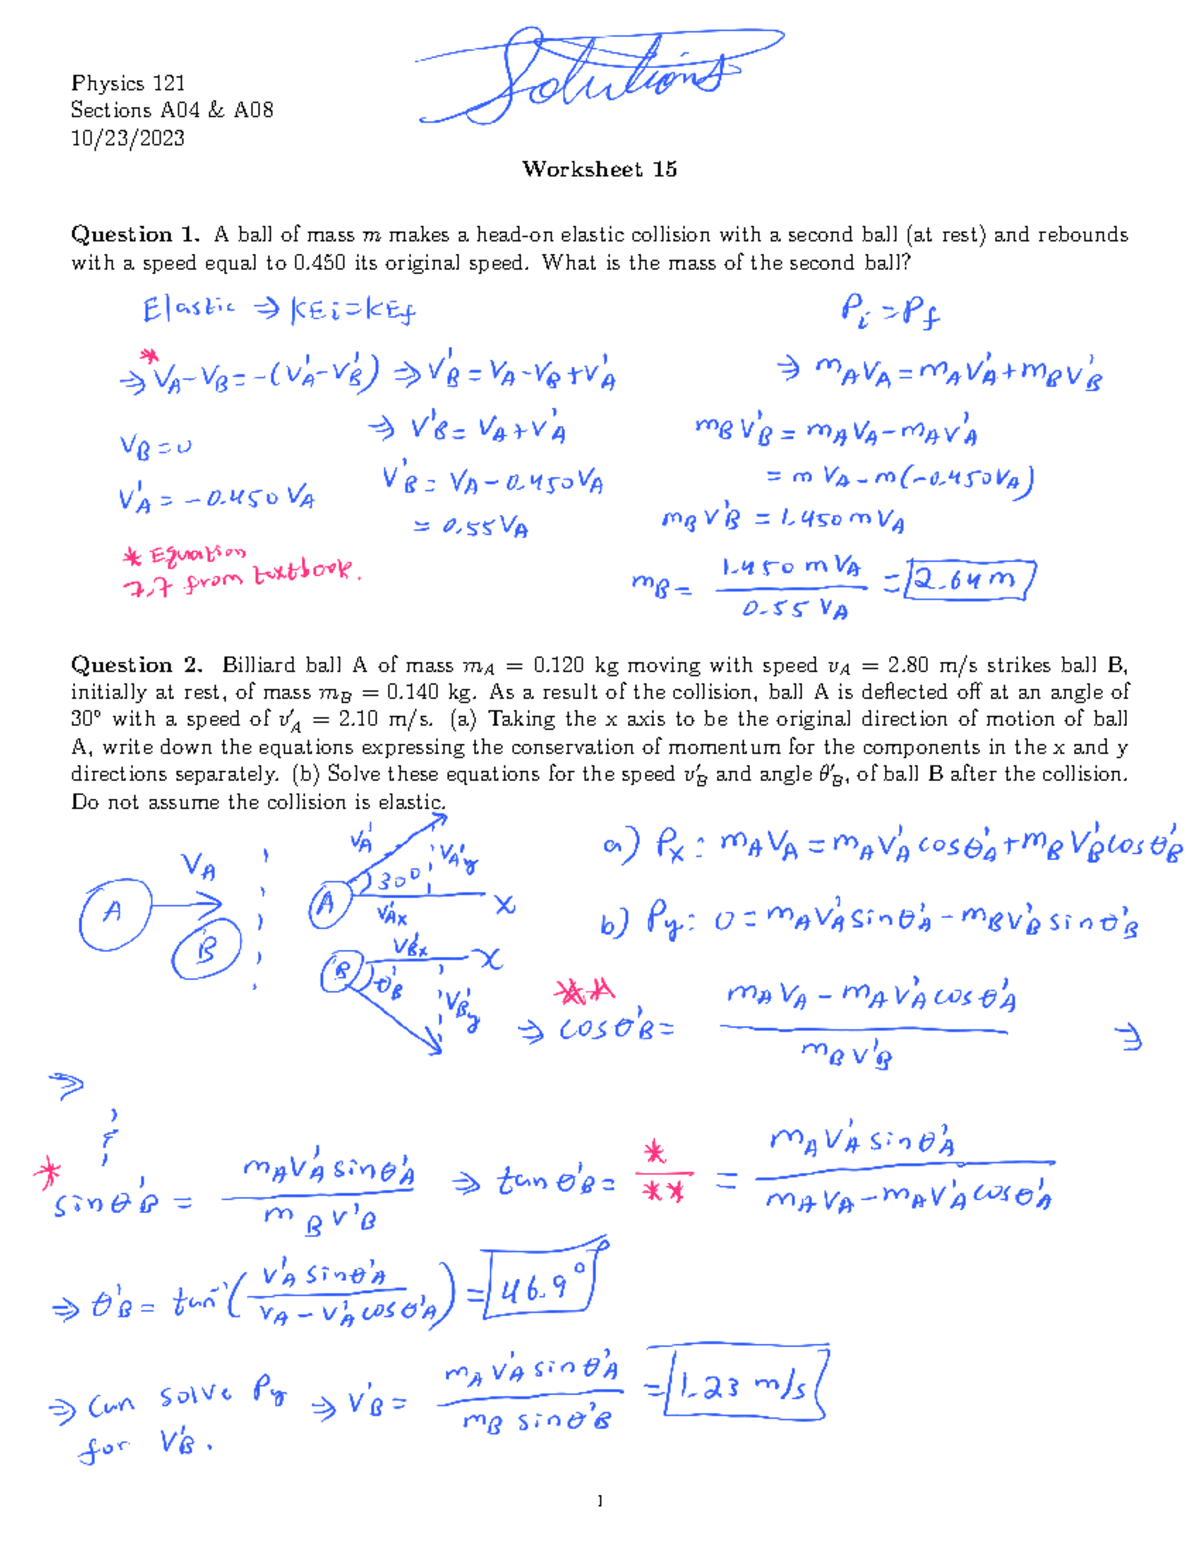 Solutions
Physics 121
Sections A04 & A08
10/23/2023
Worksheet 15
Question 1. A ball of mass m makes a head-on elastic collision with a second ball (at rest) and rebounds
with a speed equal to 0.450 its original speed. What is the mass of the second ball?
Elastic ⇒ KEi = KEf
Pi = Pf
* ⇒ VA - VB = -(V'A - V'B) ⇒ V'B = VA - VB + V'A
⇒ mAVA = mAV'A + mBV'B
VB = 0
⇒ V'B = VA + V'A
mBV'B = mAVA - mAV'A
V'A = -0.450VA
V'B = VA - 0.450VA
= mVA - m(-0.450VA)
= 0.55VA
mBV'B = 1.450mVA
* Equation
7.7 from textbook.
mB = 1.450mVA / 0.55VA = 2.64m
Question 2. Billiard ball A of mass mA = 0.120 kg moving with speed vA = 2.80 m/s strikes ball B,
initially at rest, of mass mB = 0.140 kg. As a result of the collision, ball A is deflected off at an angle of
30° with a speed of v'A = 2.10 m/s. (a) Taking the x axis to be the original direction of motion of ball
A, write down the equations expressing the conservation of momentum for the components in the x and y
directions separately. (b) Solve these equations for the speed v'B and angle θ'B, of ball B after the collision.
Do not assume the collision is elastic.
VA
A
B
V'A
V'Ay
30°
A
V'Ax
X
V'Bx
X
B
θ'B
V'By
a) Px: mAVA = mAV'A cosθ'A + mBV'B cosθ'B
b) Py: 0 = mAV'A sinθ'A - mBV'B sinθ'B
**
⇒ cosθ'B = mAVA - mAV'A cosθ'A / mBV'B ⇒
⇒
* sinθ'B = mAV'A sinθ'A / mBV'B ⇒ tanθ'B = * / ** = mAV'A sinθ'A / mAVA - mAV'A cosθ'A
⇒ θ'B = tan⁻¹(V'A sinθ'A / VA - V'A cosθ'A) = 46.9°
⇒ Can solve Py ⇒ V'B = mAV'A sinθ'A / mB sinθ'B = 1.23 m/s
for V'B.
1